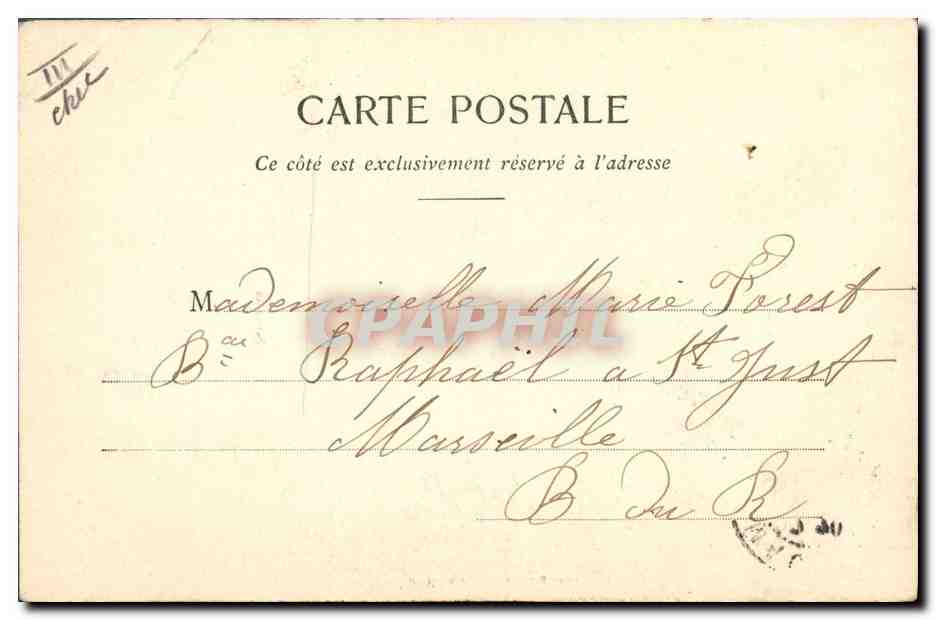 III
CARTE POSTALE
Ce côté est exclusivement réservé à l'adresse
Mademoiselle Marie Forest
CPAPHIL
Raphaël a St Just
Marseille
B du R